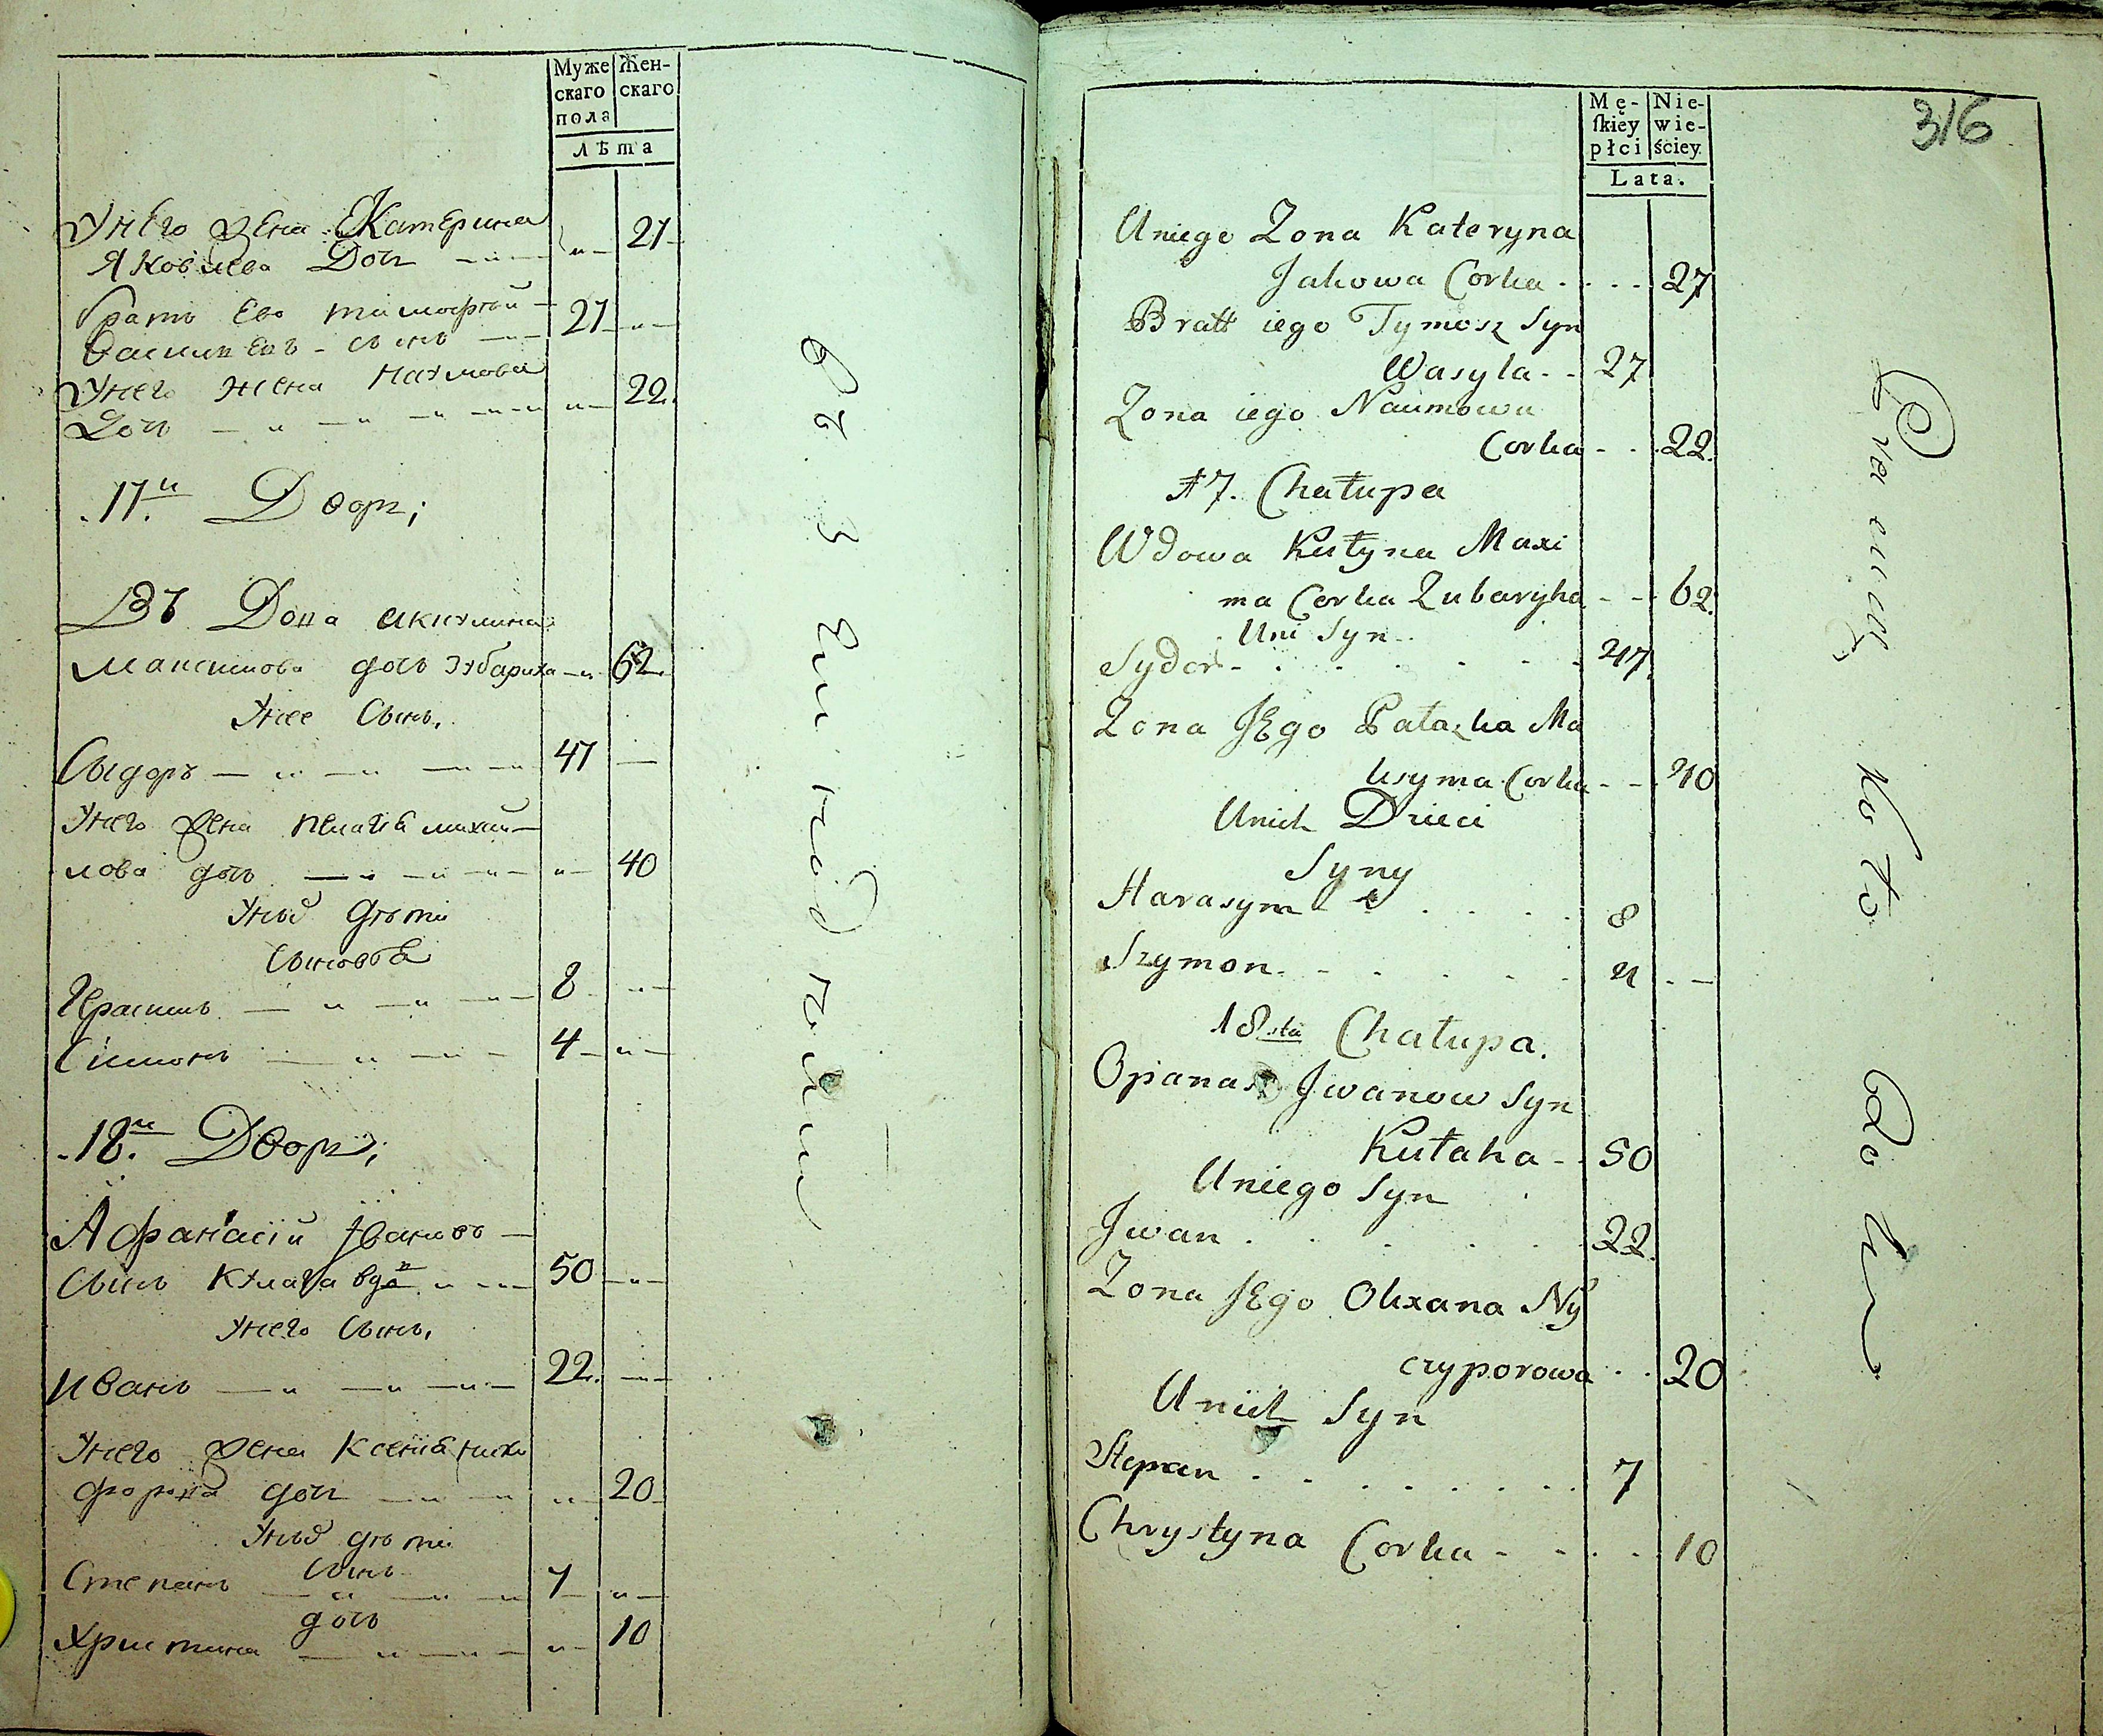 Муже
скаго
пола
Жен-
скаго
лѣта
Унего Жена Катерина
Яковлева Дочь 27
братъ Ево тимофѣй
Василиевъ сынъ 27
Унего жена Наумова
Дочь 22.
17й Дворъ;
Вдова акилина
Максимова дочь Зубариха 62
Унее Сынъ.
Сыдоръ 47
Унего Жена пелагѣя михай-
лова дочь 40
Унихъ дѣти
Сыновья
Герасимъ 8
Симонъ 4
18й Дворъ;
Афанасiй Iвановъ
Сынъ Кулага вдо 50
Унего Сынъ.
Иванъ 22.
Унего Жена Ксения ники
форова дочь 20
Унихъ дѣти
Сынъ
Степанъ 7
дочь
Христина 10
316
Mę-
skiey
płci
Nie-
wie-
ściey
Lata.
Uniego Zona Kateryna
Jakowa Corka 27
Bratt iego Tymosz Syn
Wasyla 27
Zona iego Naumowa
Corka 22.
17. Chałupa
Wdowa Kułyna Maxi
ma Corka Zubarycha 62.
Uni Syn
Sydor 47.
Zona JEgo Pałazka Ma
ksyma Corka 40
Unich Dzieci
Syny
Harasym 8
Szymon 4
18sta Chałupa.
Opanas Jwanow Syn
Kułaha 50
Uniego Syn
Jwan 22.
Zona JEgo Olixana Ny
czyporowa 20
Unich Syn
Stepan 7
Chrystyna Corka 10